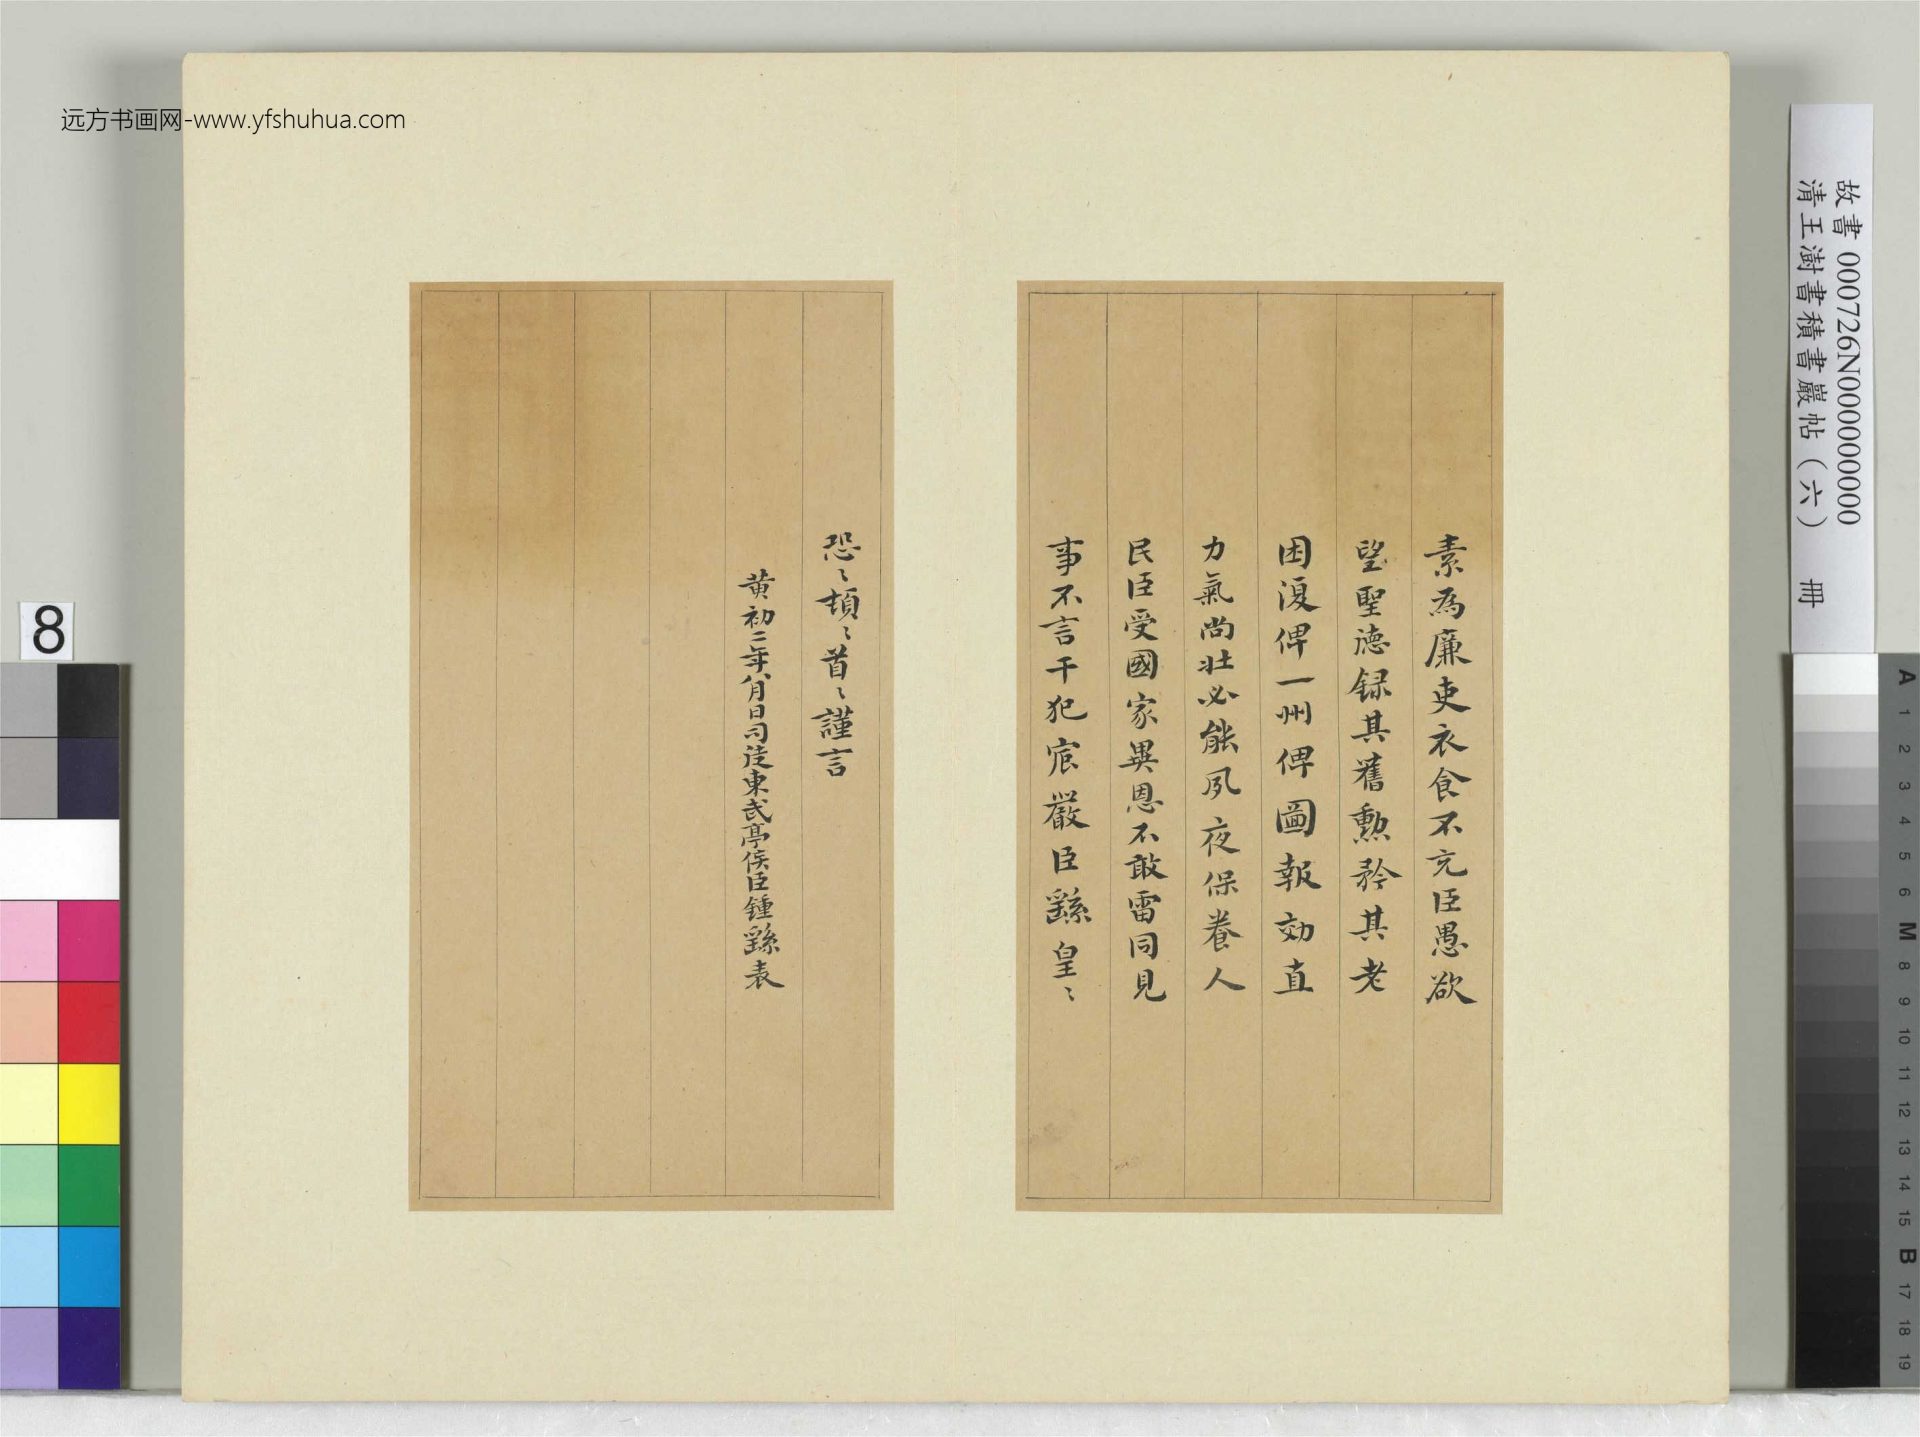 远方书画网-www.yfshuhua.com
故書00726N000000000
清王澍書積書巖帖（六） 冊
素為廉吏衣食不充臣愚欲
望聖德録其舊勲矜其老
困復俾一州俾圖報効直
力氣尚壯必能夙夜保養人
民臣受國家異恩不敢雷同見
事不言干犯宸嚴臣繇皇〻
恐〻頓〻首〻謹言
黄初二年八月日司徒東武亭侯臣鍾繇表
8
A 1 2 3 4 5 6 M 8 9 10 11 12 13 14 15 B 17 18 19